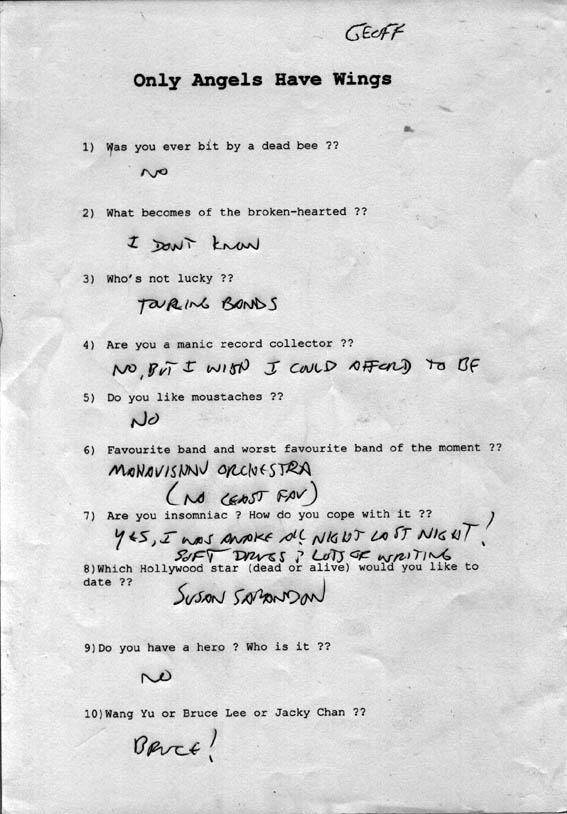 GEOFF
Only Angels Have Wings
1) Was you ever bit by a dead bee ??
NO
2) What becomes of the broken-hearted ??
I DONT KNOW
3) Who's not lucky ??
TOURING BANDS
4) Are you a manic record collector ??
NO, BUT I WISH I COULD AFFORD TO BE
5) Do you like moustaches ??
NO
6) Favourite band and worst favourite band of the moment ??
MAHAVISHNU ORCHESTRA
(NO LEAST FAV)
7) Are you insomniac ? How do you cope with it ??
YES, I WAS AWAKE ALL NIGHT LAST NIGHT!
SOFT DRUGS ? LOTS OF WRITING
8)Which Hollywood star (dead or alive) would you like to
date ??
SUSAN SARANDON
9)Do you have a hero ? Who is it ??
NO
10)Wang Yu or Bruce Lee or Jacky Chan ??
BRUCE!